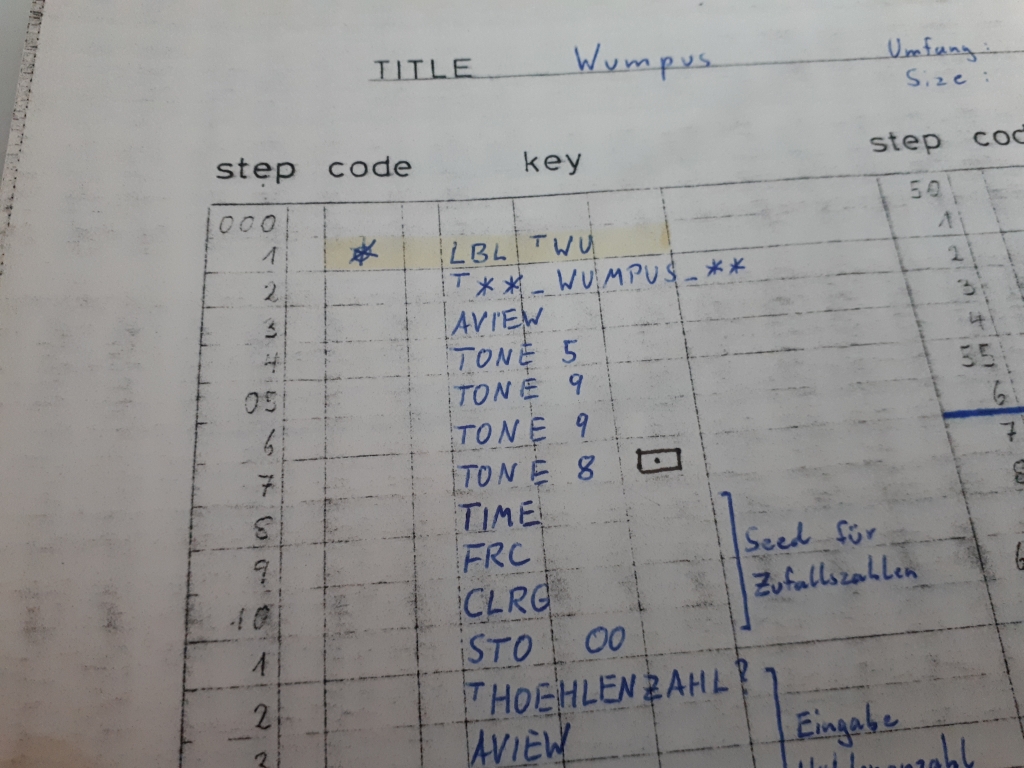 TITLE Wumpus Umfang:
Size:
step code key step cod
000 50
1 * LBL ᵀWU 1
2 ᵀ**_WUMPUS_** 2
3 AVIEW 3
4 TONE 5 4
05 TONE 9 55
6 TONE 9 6
7 TONE 8 7
8 TIME 8
9 FRC Seed für
10 CLRG Zufallszahlen 6
1 STO 00
2 ᵀHOEHLENZAHL?
3 AVIEW Eingabe